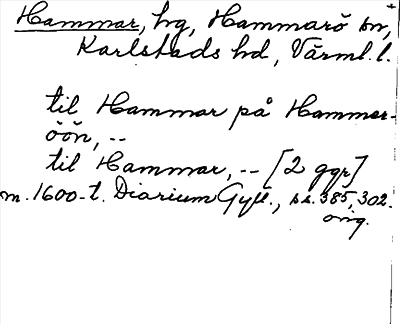 Hammar, hg, Hammarö sn,
Karlstads hd, Värml. l.
til Hammar på Hammer-
öön, --
til Hammar, -- [2 ggr]
m. 1600-t. Diarium Gyll., ss. 385, 302.
orig.